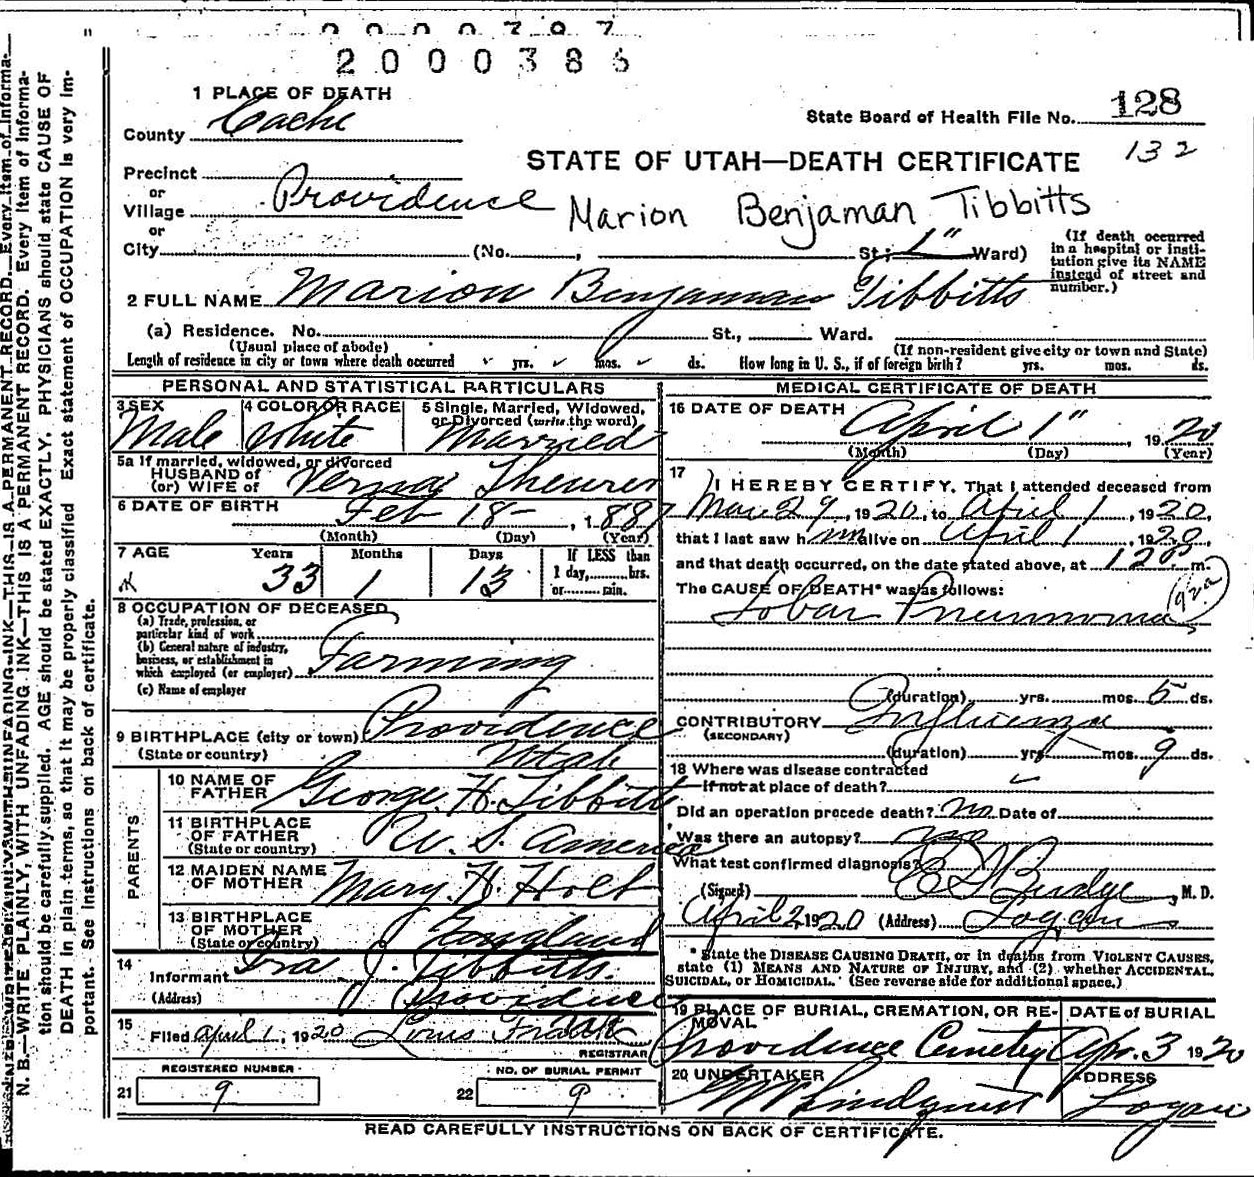 2000386
1 PLACE OF DEATH
County Cache
State Board of Health File No. 128
132
STATE OF UTAH—DEATH CERTIFICATE
Precinct
or
Village Providence
Marion Benjaman Tibbitts
or
City (No. , St; 1" Ward)
(If death occurred in a hospital or institution give its NAME instead of street and number.)
2 FULL NAME Marion Benjaman Tibbitts
(a) Residence. No. St., Ward.
(Usual place of abode) (If non-resident give city or town and State)
Length of residence in city or town where death occurred yrs. mos. ds. How long in U. S., if of foreign birth? yrs. mos. ds.
PERSONAL AND STATISTICAL PARTICULARS
3 SEX Male
4 COLOR OR RACE White
5 Single, Married, Widowed, or Divorced (write the word) Married
5a If married, widowed, or divorced
HUSBAND of
(or) WIFE of Verna Theurer
6 DATE OF BIRTH Feb 18 , 1887
(Month) (Day) (Year)
7 AGE Years 33 Months 1 Days 13
If LESS than
1 day, hrs.
or min.
8 OCCUPATION OF DECEASED
(a) Trade, profession, or
particular kind of work
(b) General nature of industry,
business, or establishment in
which employed (or employer) Farming
(c) Name of employer
9 BIRTHPLACE (city or town) Providence
(State or country) Utah
PARENTS
10 NAME OF FATHER George H. Tibbitts
11 BIRTHPLACE OF FATHER
(State or country) U. S. America
12 MAIDEN NAME OF MOTHER Mary H. Holt
13 BIRTHPLACE OF MOTHER
(State or country) England
14 Informant Ira J. Tibbitts
(Address) Providence
15 Filed April 1, 1920 Louis
REGISTRAR
REGISTERED NUMBER
21 9
NO. OF BURIAL PERMIT
22 9
MEDICAL CERTIFICATE OF DEATH
16 DATE OF DEATH April 1" , 1920
(Month) (Day) (Year)
17 I HEREBY CERTIFY, That I attended deceased from
Mar 29, 1920, to April 1, 1920,
that I last saw him alive on April 1, 1920,
and that death occurred, on the date stated above, at m.
The CAUSE OF DEATH* was as follows:
Lobar Pneumonia
(duration) yrs. mos. 5 ds.
CONTRIBUTORY Influenza
(SECONDARY)
(duration) yrs. mos. 9 ds.
18 Where was disease contracted
If not at place of death?
Did an operation precede death? no Date of
Was there an autopsy? no
What test confirmed diagnosis?
(Signed) Budge, M. D.
April 2, 1920 (Address) Logan
* State the DISEASE CAUSING DEATH, or in deaths from VIOLENT CAUSES,
state (1) MEANS AND NATURE OF INJURY, and (2) whether ACCIDENTAL,
SUICIDAL, or HOMICIDAL. (See reverse side for additional space.)
19 PLACE OF BURIAL, CREMATION, OR REMOVAL Providence Cemetery
DATE of BURIAL Apr. 3 1920
20 UNDERTAKER Lindquist
ADDRESS Logan
READ CAREFULLY INSTRUCTIONS ON BACK OF CERTIFICATE.
N. B.—WRITE PLAINLY, WITH UNFADING INK—THIS IS A PERMANENT RECORD. Every item of information should be carefully supplied. AGE should be stated EXACTLY. PHYSICIANS should state CAUSE OF DEATH in plain terms, so that it may be properly classified. Exact statement of OCCUPATION is very important. See Instructions on back of certificate.